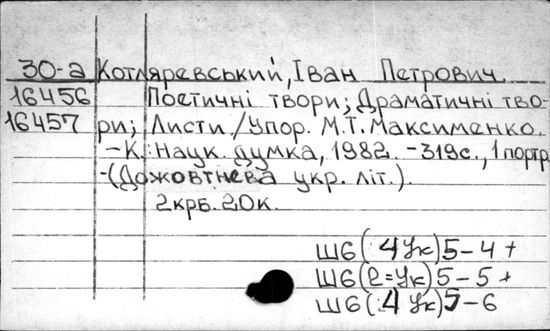 30-а Котляревський, Іван Петрович.
16456 Поетичні твори; Драматичні тво-
16457 ри; Листи./Упор. М.Т. Максименко.
-К.: Наук. думка, 1982. -319с., 1 портр
-(Дожовтнева укр. літ.).
2крб. 20к.
Ш6(4Ук)5-4 +
Ш6(2=Ук)5-5 +
Ш6(4Ук)5-6